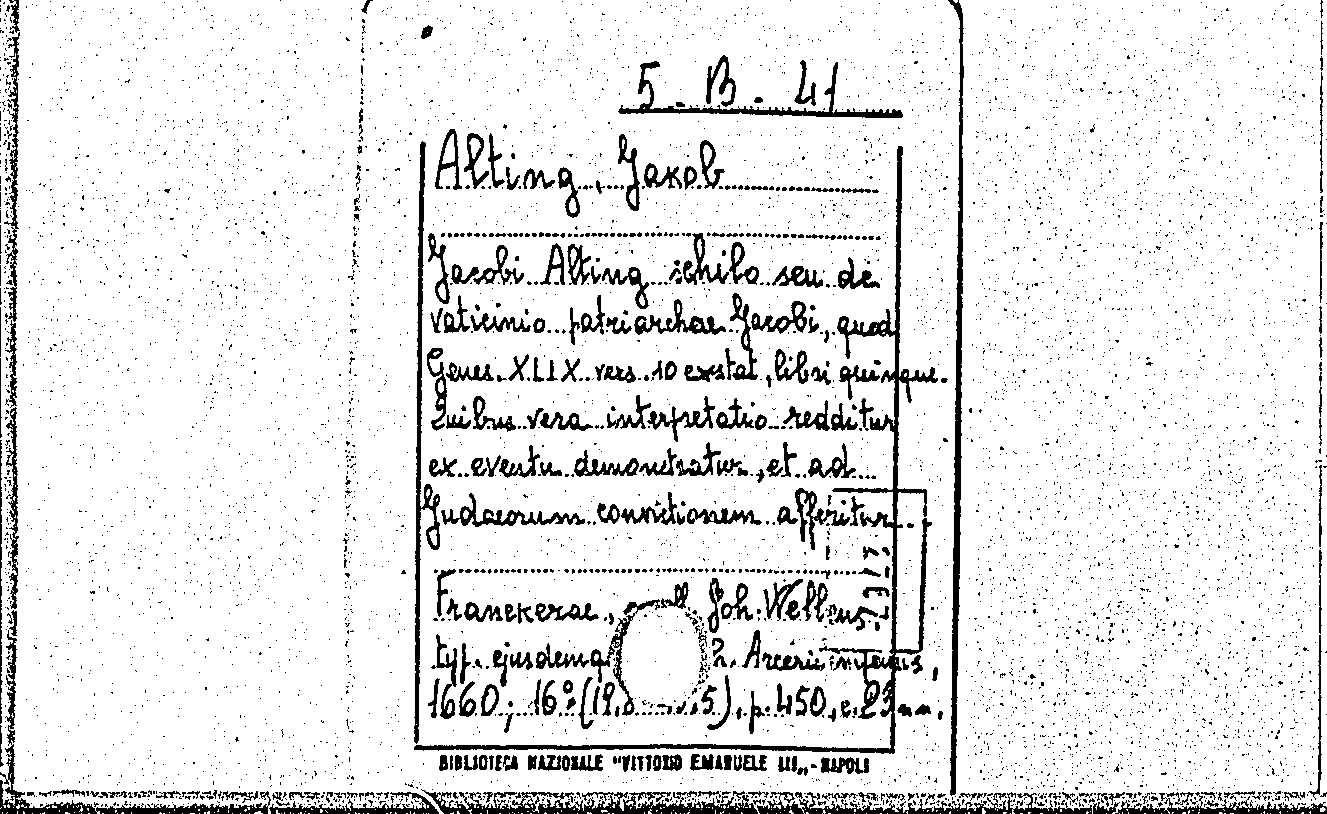 5 - B - 41
Alting, Jakob
Jacobi Alting schilo seu de
vaticinio patriarchae Jacobi, quod
Genes. XLIX vers. 10 exstat, libri quinque.
Quibus vera interpretatio redditur
ex eventu demonstratur, et ad
Judaeorum convictionem afferitur...
Franekerae, Joh. Wellens,
typ. ejusdemq. Arcerii impensis,
1660; 16° (19, 5), p. 450, c. 23 nn.
BIBLIOTECA NAZIONALE "VITTORIO EMANUELE III„ - NAPOLI